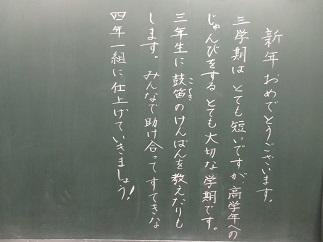 新年おめでとうございます。
三学期は とても短いですが 高学年への
じゅんびをする とても大切な学期です。
三年生に鼓笛のけんばんを教えたりも
こてき
します。 みんなで助け合ってすてきな
四年一組に仕上げていきましょう！